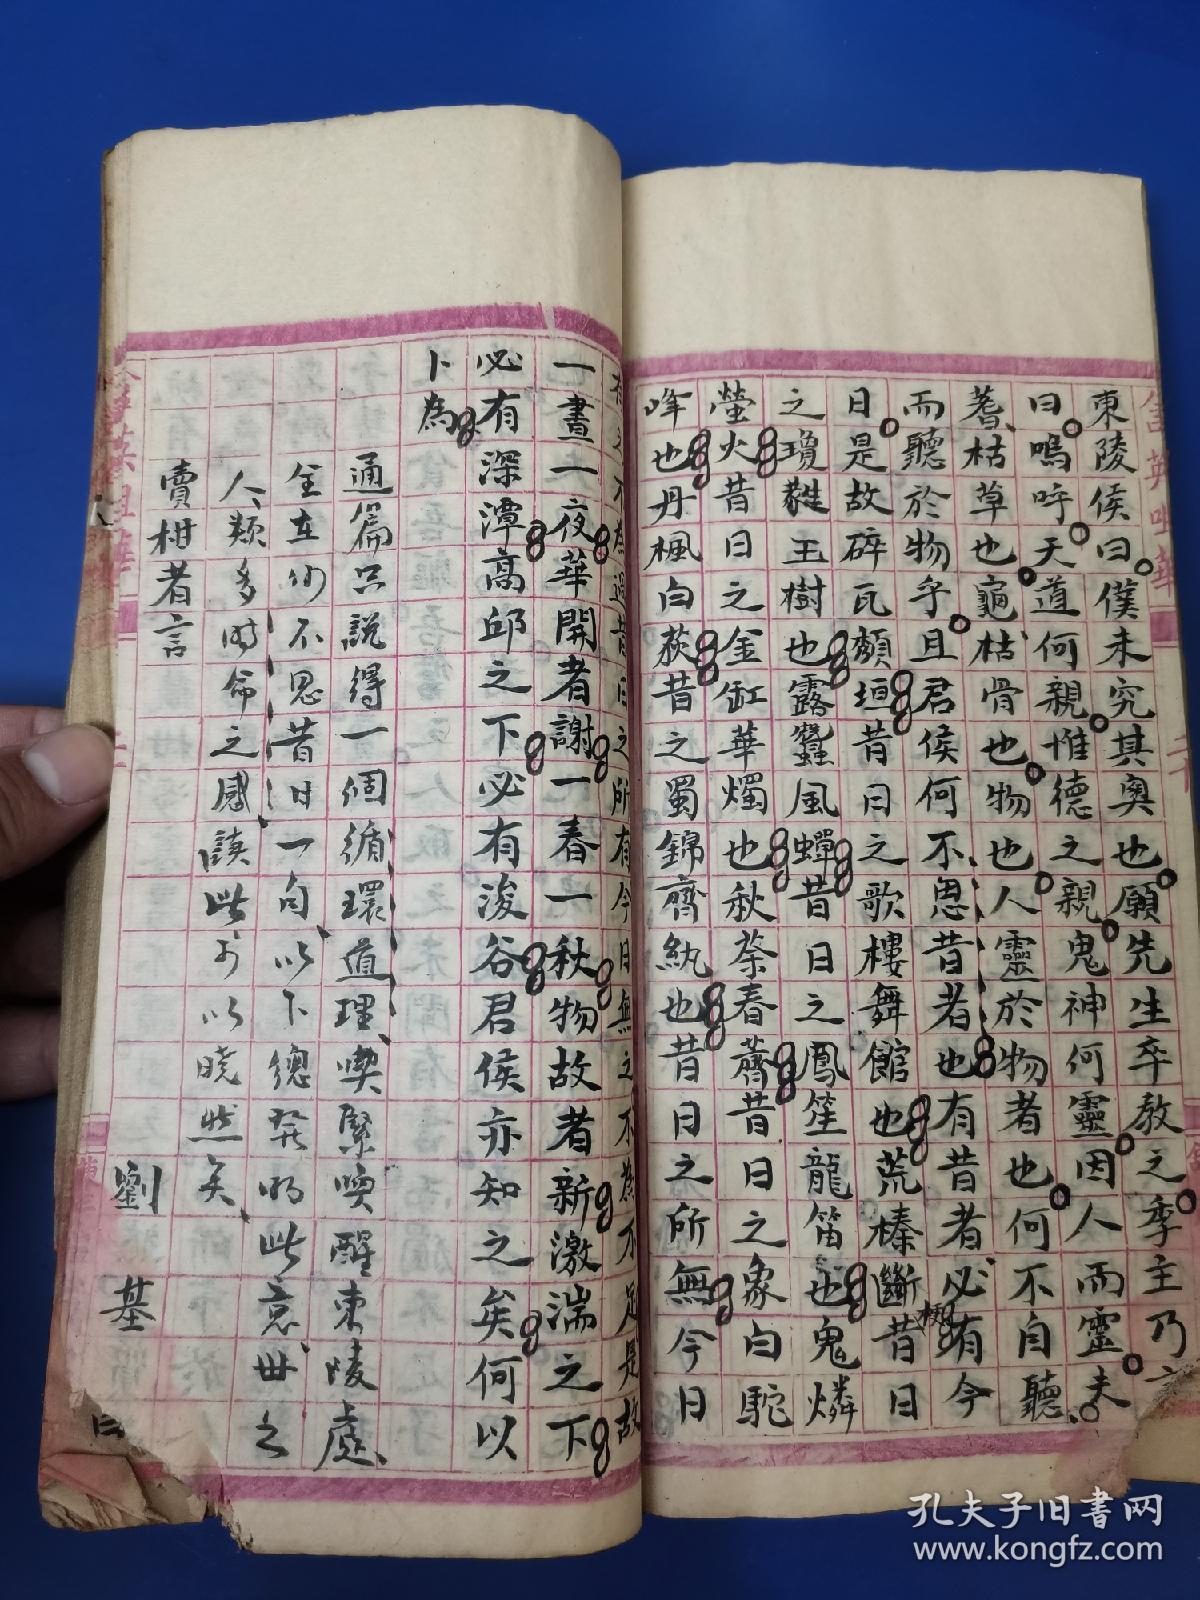 東陵侯曰僕未究其奧也願先生卒教之季主乃
曰嗚呼天道何親惟德之親鬼神何靈因人而靈夫
蓍枯草也龜枯骨也物也人靈於物者也何不自聽
而聽於物乎且君侯何不思昔者也有昔者必有今
日是故碎瓦頹垣昔日之歌樓舞館也荒榛斷梗昔日
之瓊蕤玉樹也露蠶風蟬昔日之鳳笙龍笛也鬼燐
螢火昔日之金缸華燭也秋荼春薺昔日之象白駝
峰也丹楓白荻昔之蜀錦齊紈也昔日之所無今日
有之不為過昔日之所有今日無之不為不足是故
一晝一夜華開者謝一春一秋物故者新激湍之下
必有深潭高邱之下必有浚谷君侯亦知之矣何以
卜為
通篇只說得一個循環道理喫緊喚醒東陵處
全在何不思昔日一句以下總發明此意世之
人類多時命之感讀此可以曉然矣
賣柑者言 劉基
孔夫子旧书网
www.kongfz.com